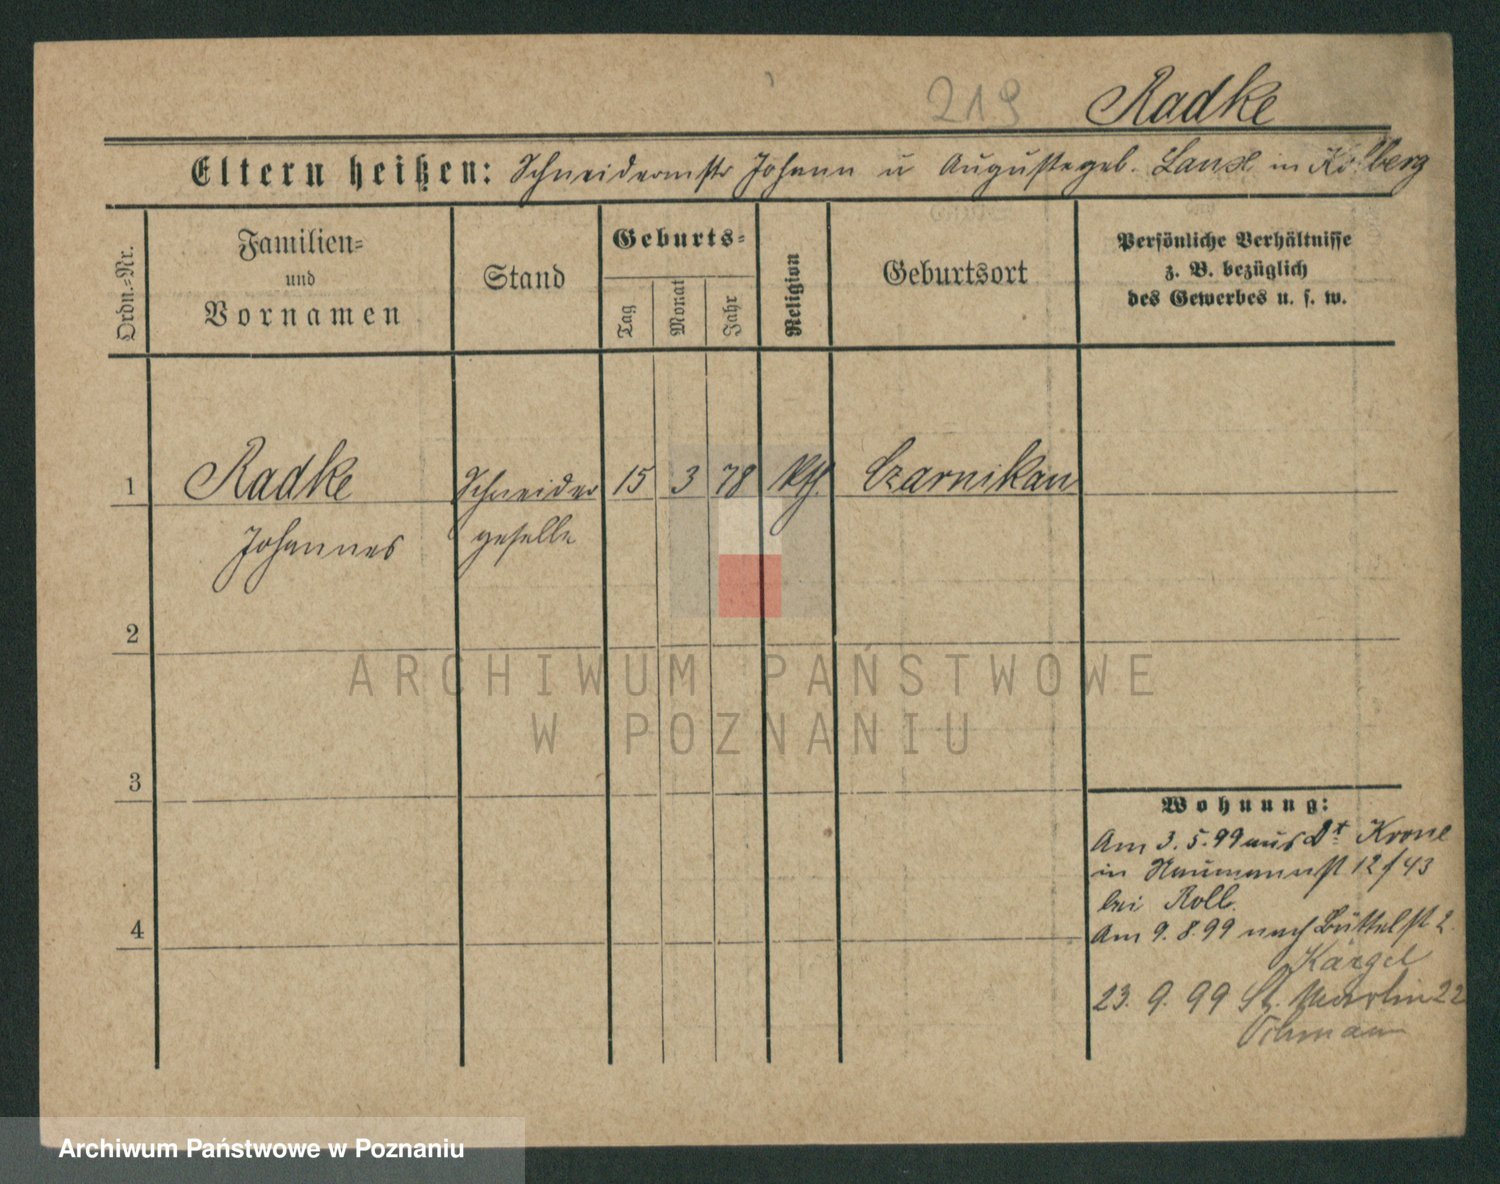 219 Radke
Eltern heißen: Schneidermstr Johann u Auguste geb. in Kolberg
Ordn.-Nr.
Familien-
und
Vornamen
Stand
Geburts-
Tag
Monat
Jahr
Religion
Geburtsort
Persönliche Verhältnisse
z. B. bezüglich
des Gewerbes u. s. w.
1 Radke Schneider 15 3 78 Kth. Czarnikau
Johannes geselle
2
3
4
Wohnung:
Am 3. 5. 99 aus Dt Krone
in Naumannst 12/43
bei Roll.
Am 9. 8. 99 nach Büttelst 2
Kärgel
23. 9. 99 St. Martin 22
ARCHIWUM PAŃSTWOWE
W POZNANIU
Archiwum Państwowe w Poznaniu